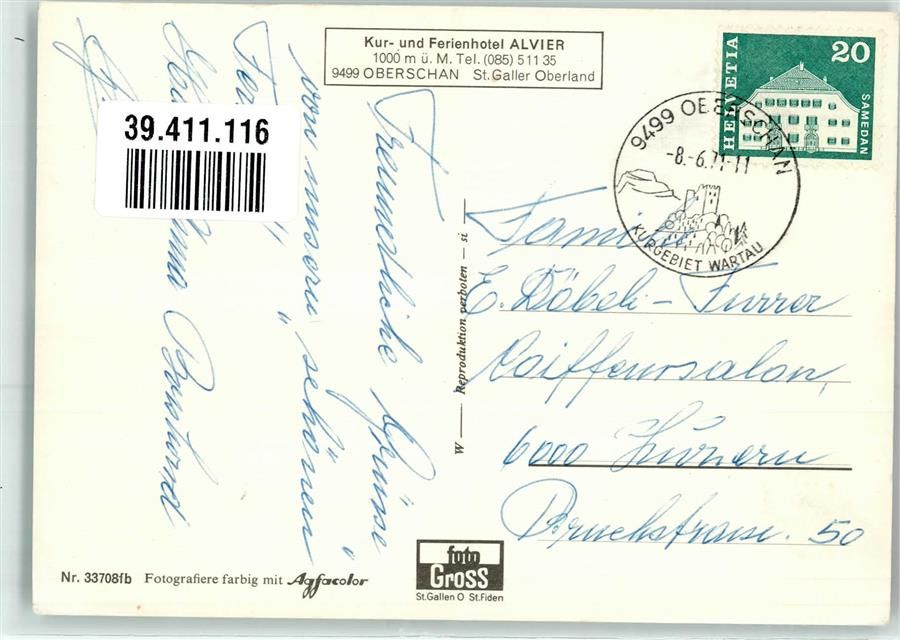 Kur- und Ferienhotel ALVIER
1000 m ü. M. Tel. (085) 5 11 35
9499 OBERSCHAN St. Galler Oberland
HELVETIA
20
SAMEDAN
9499 OBERSCHAN
-8.-6.71-11
KURGEBIET WARTAU
39.411.116
Freundliche Grüsse
von unsern schönen
Familie
E. Döbeli-Furrer
Coiffeursalon,
6000 Luzern
Bruchstrasse. 50
W — Reproduktion verboten — si
Nr. 33708fb Fotografiere farbig mit Agfacolor
foto
GROSS
St.Gallen O St.Fiden